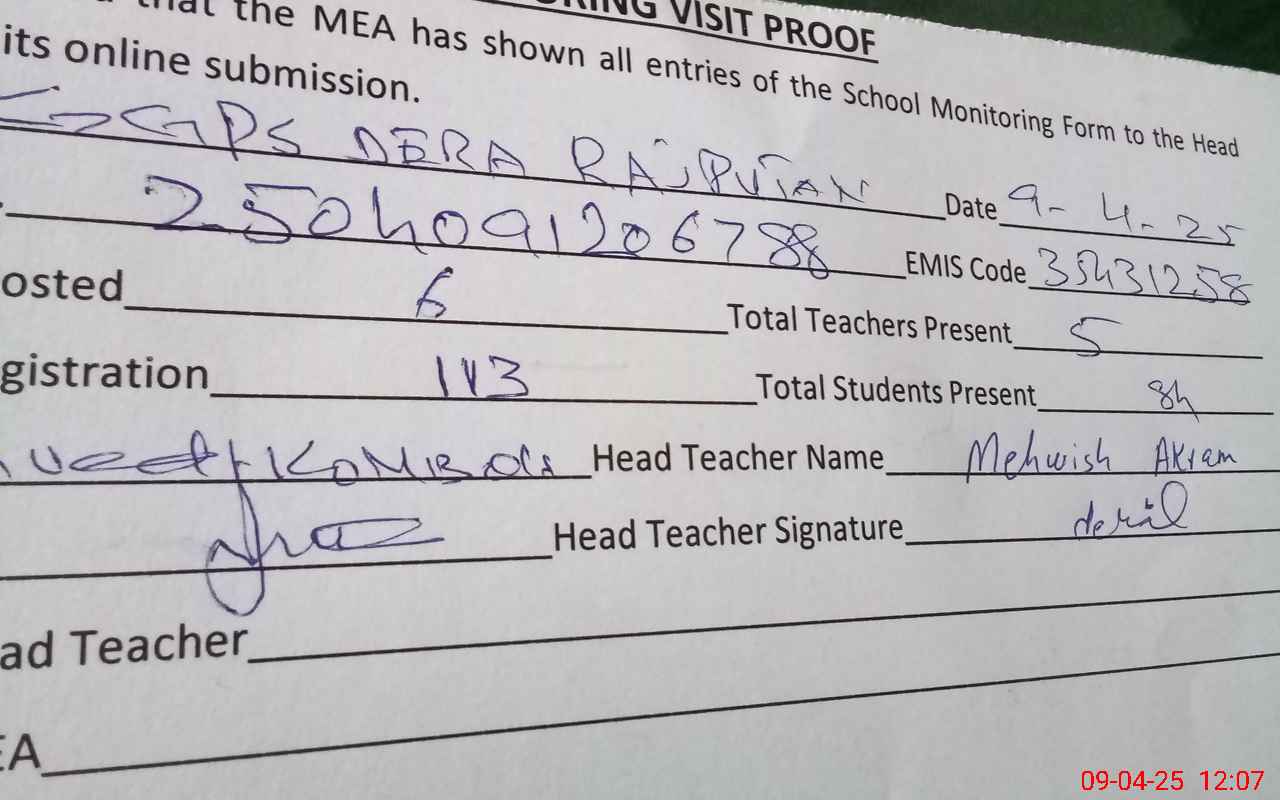 ORING VISIT PROOF
that the MEA has shown all entries of the School Monitoring Form to the Head
its online submission.
GPS DERA RAJPUTAN Date 9-4-25
2504091206788 EMIS Code 35431258
osted 6 Total Teachers Present 5
gistration 113 Total Students Present 84
Head Teacher Name Mehwish Akram
Head Teacher Signature
ad Teacher
EA
09-04-25 12:07